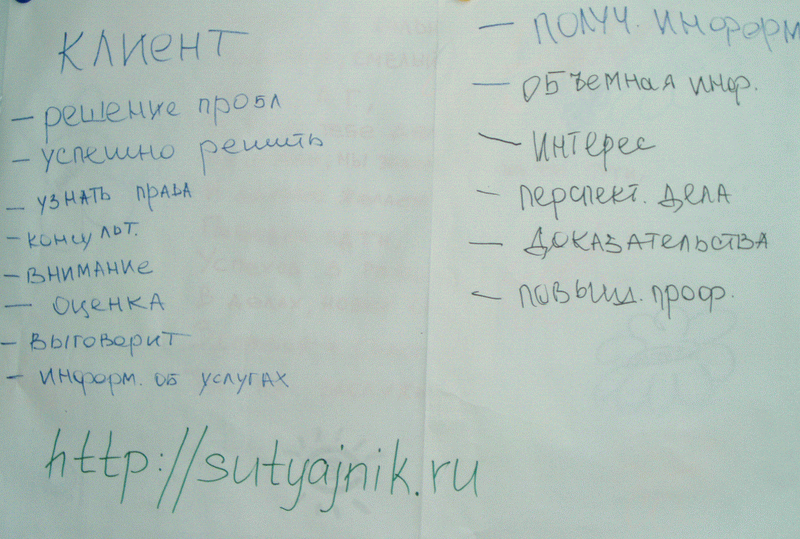 КЛИЕНТ
– РЕШЕНИЕ ПРОБЛ
– УСПЕШНО РЕШИТЬ
– УЗНАТЬ ПРАВА
– КОНСУЛЬТ.
– ВНИМАНИЕ
– ОЦЕНКА
– ВЫГОВОРИТ
– ИНФОРМ. ОБ УСЛУГАХ
http://sutyajnik.ru
– ПОЛУЧ. ИНФОРМ
– ОБЪЕМНАЯ ИНФ.
– ИНТЕРЕС
– ПЕРСПЕКТ. ДЕЛА
– ДОКАЗАТЕЛЬСТВА
– ПОВЫШ. ПРОФ.